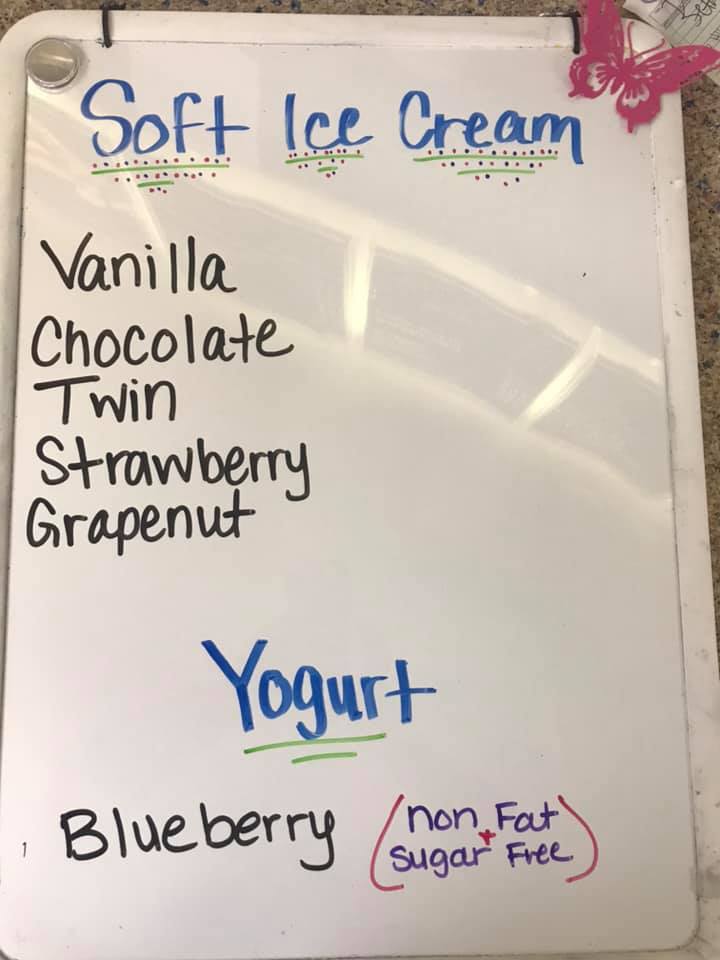 Soft Ice Cream
Vanilla
Chocolate
Twin
Strawberry
Grapenut
Yogurt
Blueberry (non Fat
+
Sugar Free)